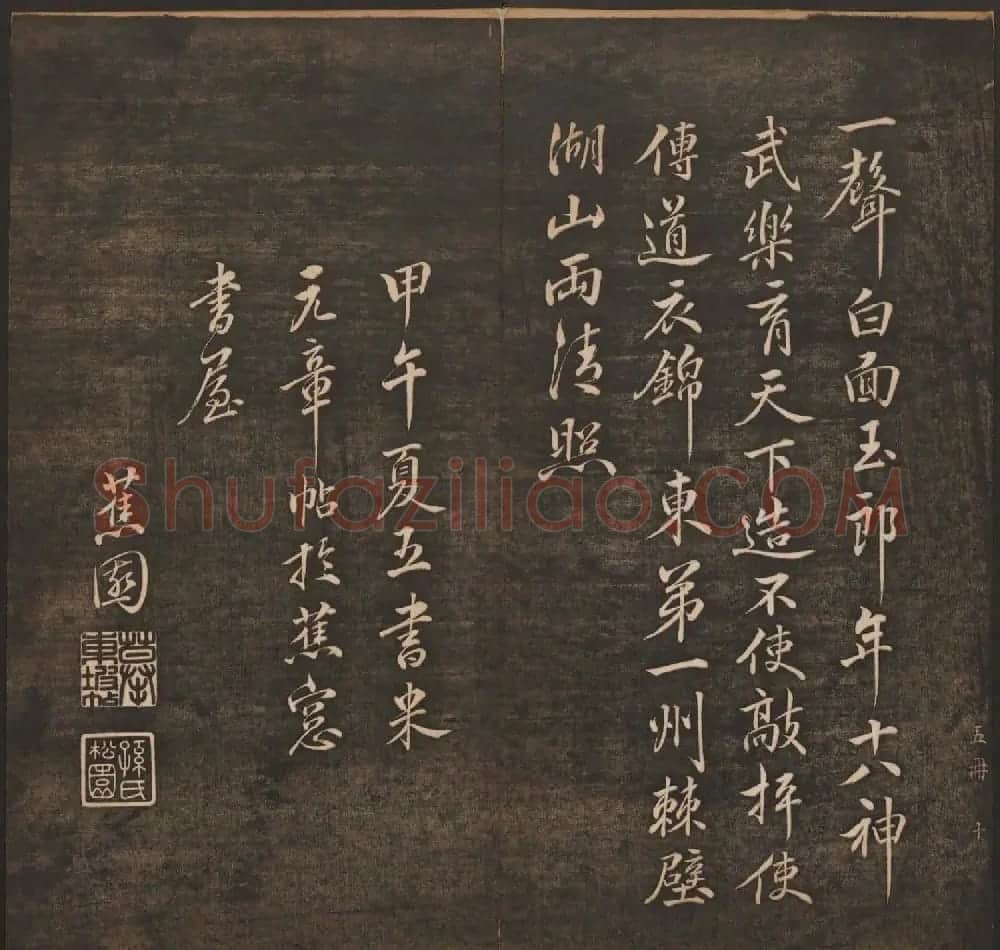 一聲白面玉郎年十八神
武樂育天下造不使敲抨使
傳道衣錦東弟一州棘壁
湖山兩清照
甲午夏五書米
元章帖於蕉窓
書屋
蕉園
孫氏
松園
五冊 十
Shufaziliao.COM